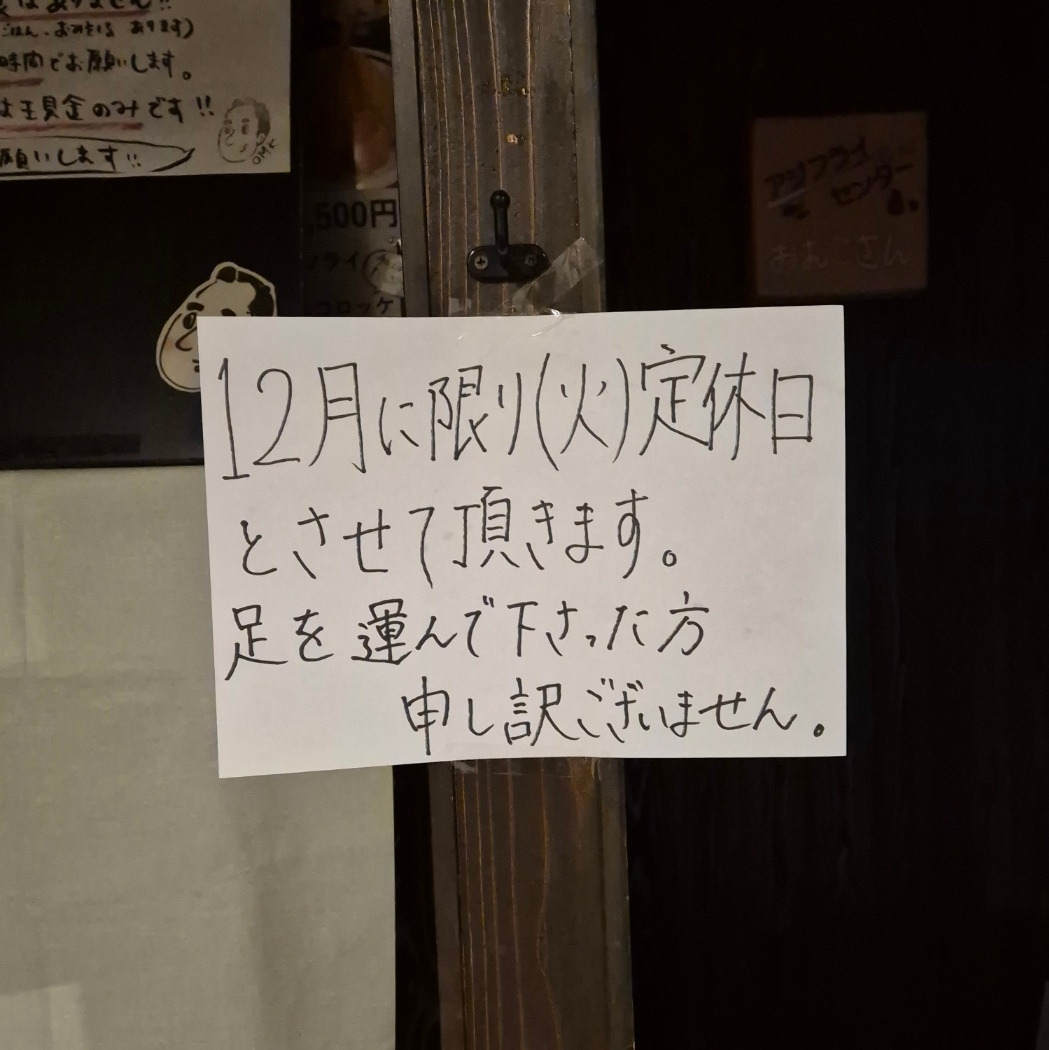 はありません!!
ごはん、おみそしる あります)
時間でお願いします。
は現金のみです!!
願いします!!
OMK
500円
フライ
コロッケ
アジフライ
センター
12月に限り(火)定休日
とさせて頂きます。
足を運んで下さった方
申し訳ございません。